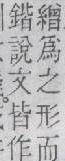 繒爲之形而
鍇說文皆作